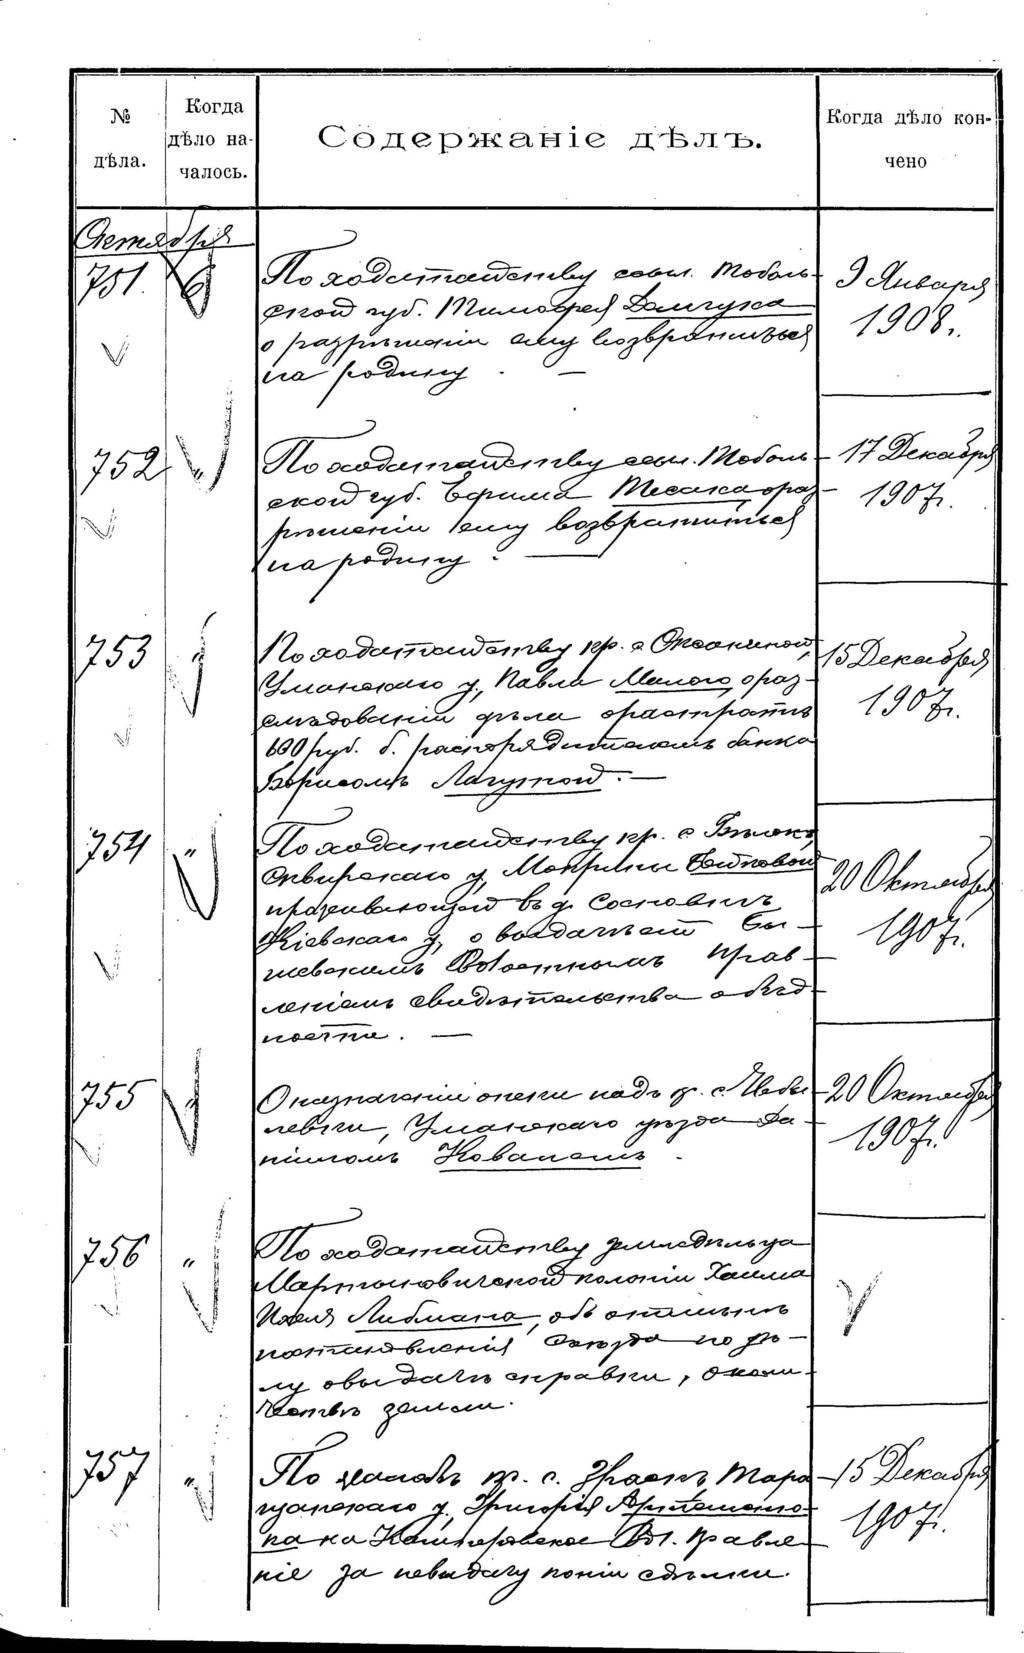 № дѣла.
Когда дѣло на-
чалось.
Содержаніе дѣлъ.
Когда дѣло кон-
чено
Октября
751. 6
По ходатайству ссыл. Тоболь-
ской губ. Тимофея Демчука
о разрѣшеніи ему возвратиться
на родину. —
9 Января
1908 г.
752 "
По ходатайству ссыл. Тоболь-
ской губ. Ефима Месака о раз-
рѣшеніи ему возвратиться
на родину. —
17 Декабря
1907 г.
753 "
По ходатайству кр. с.
Уманскаго у., Павла Малого, о раз-
слѣдованіи дѣла о растратѣ
600 руб. б. распорядителемъ банка
Борисомъ Лагутой. —
15 Декабря
1907 г.
754 "
По ходатайству кр. с.
Сквирскаго у., Макрины
проживающей въ д. Сосновкѣ
Кіевскаго у., о невыдачѣ ей Бы-
шевскимъ Волостнымъ Прав-
леніемъ свидѣтельства о бѣд-
ности. —
20 Октября
1907 г.
755 "
О назначеніи опеки надъ кр. с.
Уманскаго уѣзда Да-
ніиломъ Ковалемъ.
20 Октября
1907 г.
756 "
По ходатайству земледѣльца
Мартыновичской колоніи Хаима
Либмана, объ отмѣнѣ
постановленія Съѣзда по дѣ-
лу о выдачѣ справки, о коли-
чествѣ земли.
757 "
По жалобѣ кр. с. Тара-
щанскаго у. Григорія Артеменко-
ва на Вол. Правле-
ніе за невыдачу копіи сдѣлки.
15 Декабря
1907 г.